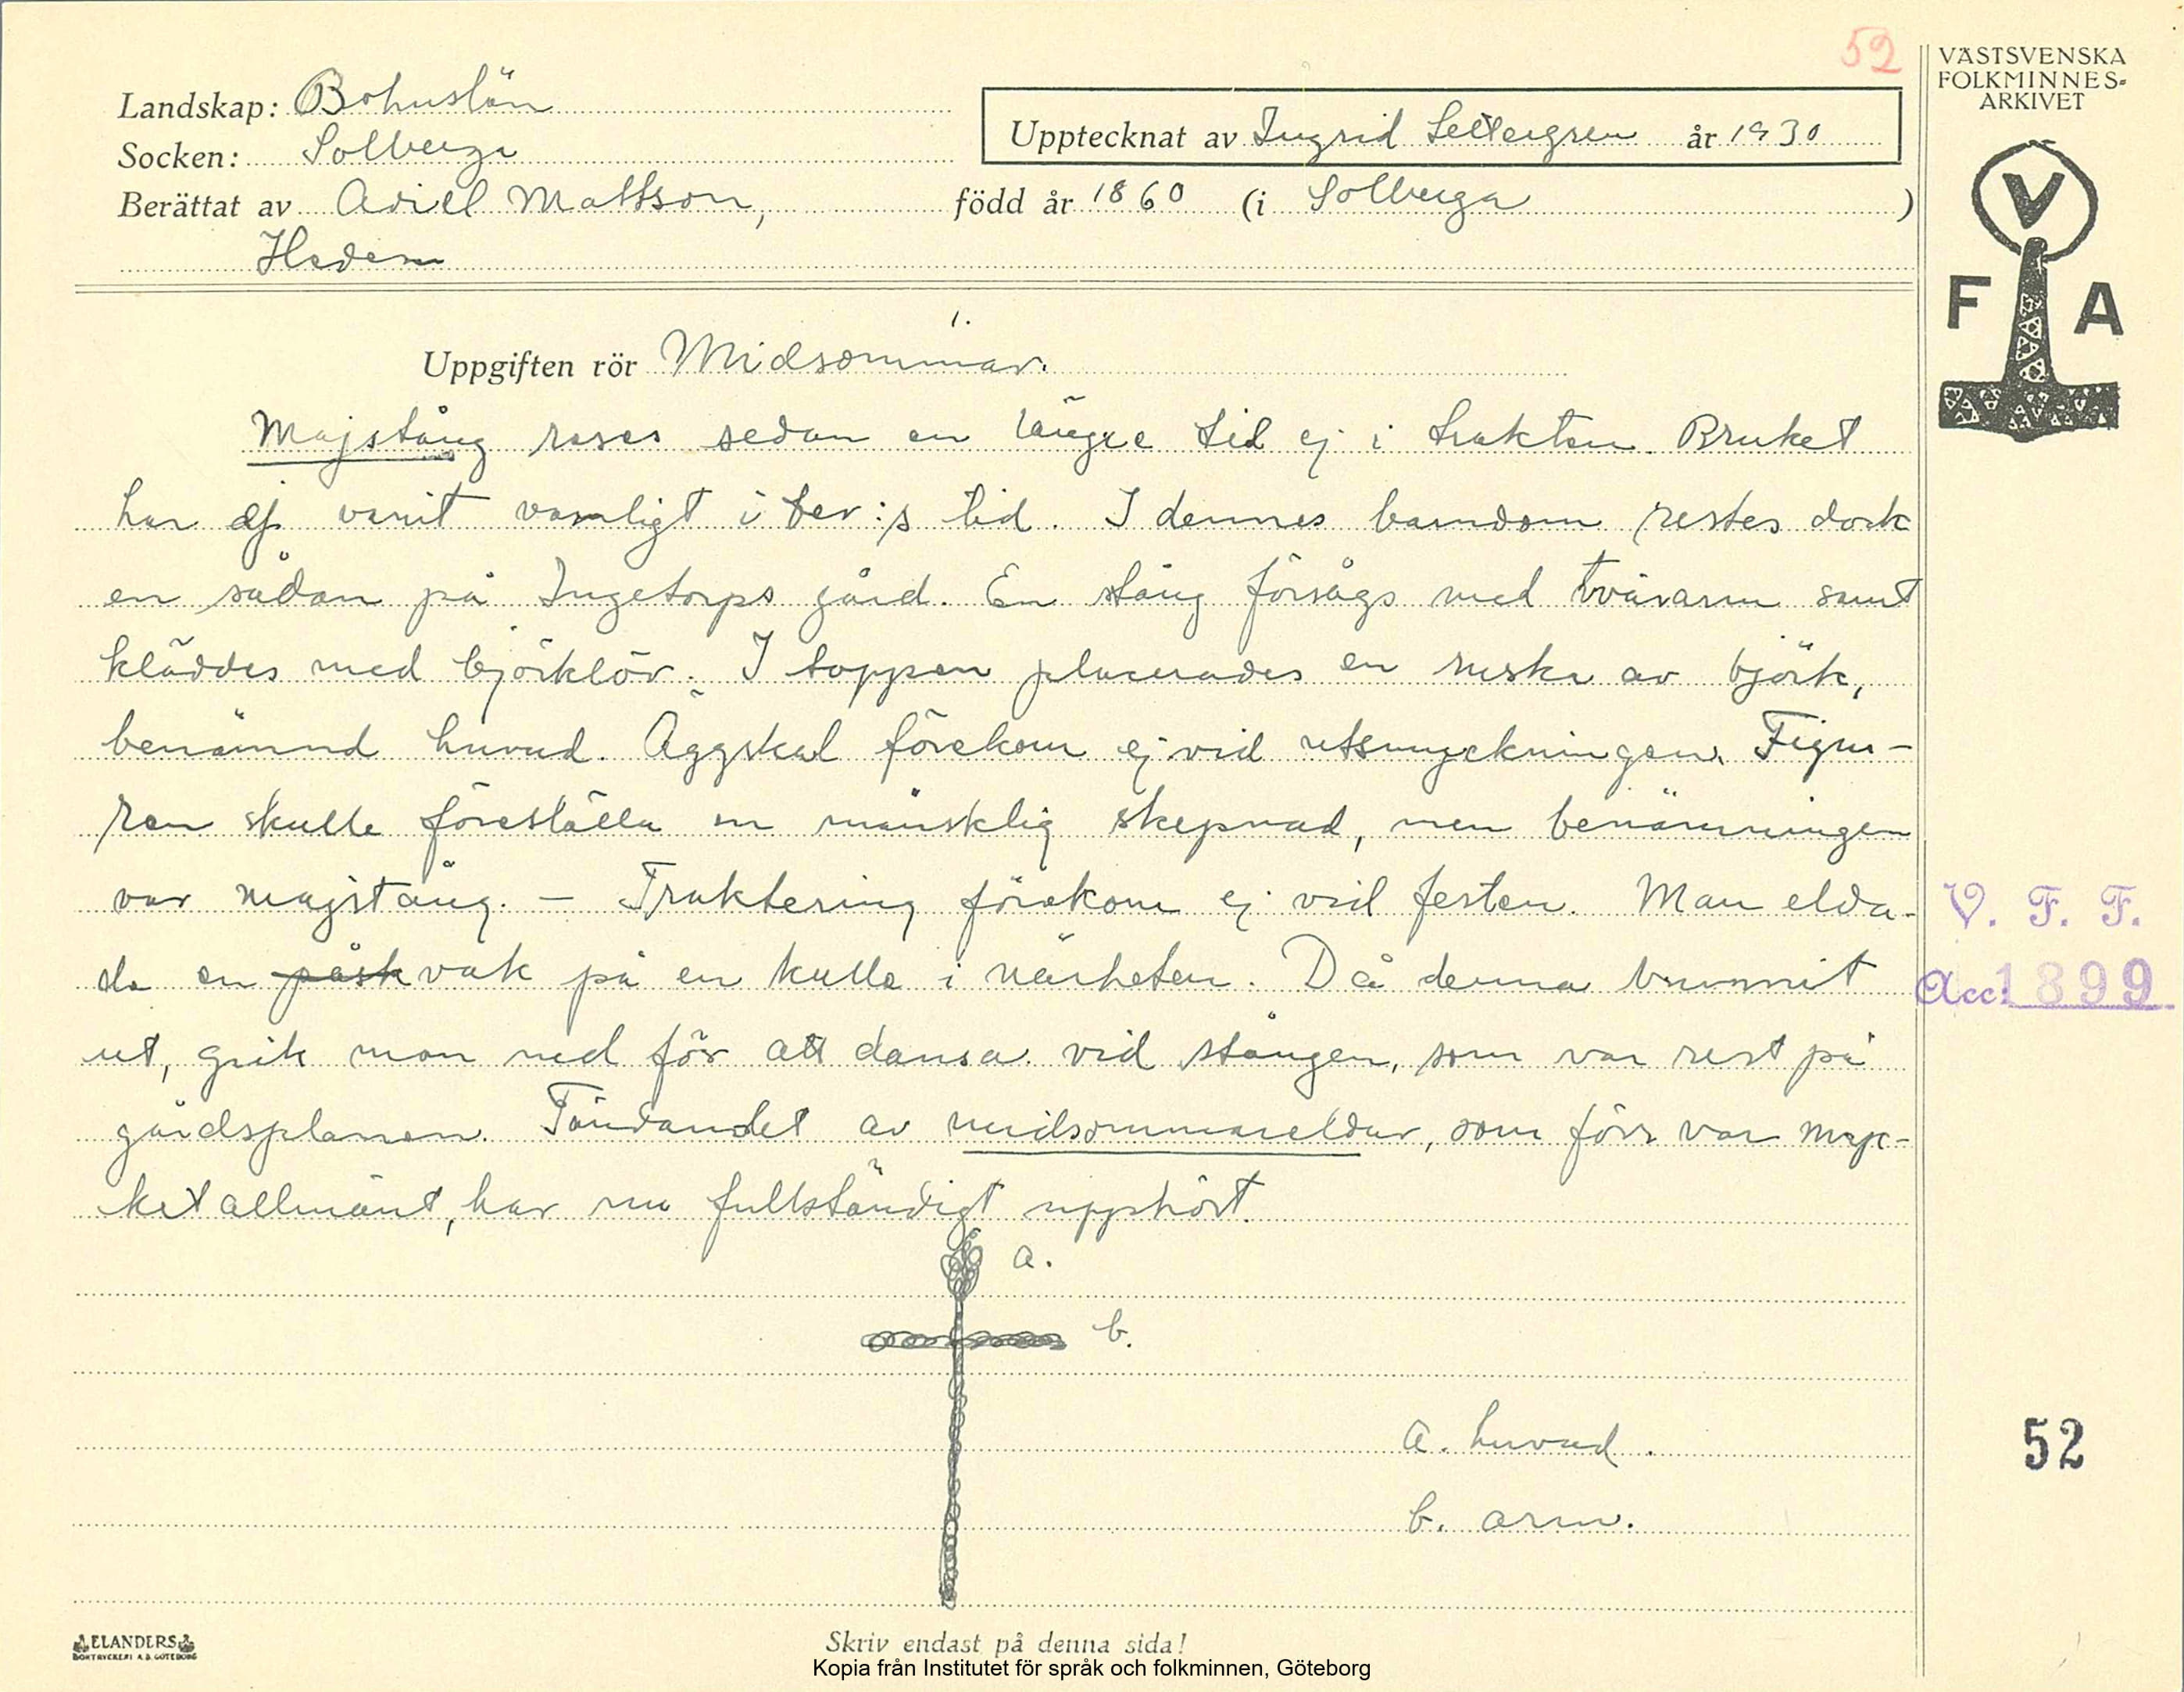 52
VÄSTSVENSKA
FOLKMINNES-
ARKIVET
Landskap: Bohuslän
Upptecknat av Ingrid Settergren år 1930
Socken: Solberga
Berättat av Adiel Mattson, född år 1860 (i Solberga )
Heden
V
F A
1.
Uppgiften rör Midsommar.
Majstång reses sedan en längre tid ej i trakten. Bruket
har ej varit vanligt i ber:s tid. I dennes barndom restes dock
en sådan på Ingetorps gård. En stång försågs med tvärarm samt
kläddes med björklöv. I toppen placerades en ruska av björk,
benämnd huvud. Äggskal förekom ej vid utsmyckningen. Figu-
ren skulle föreställa en mänsklig skepnad, men benämningen
var majstång. – Traktering förekom ej vid festen. Man elda-
V. F. F.
de en påsk vak på en kulle i närheten. Då denna brunnit
Acc: 1899
ut, gick man ned för att dansa vid stången, som var rest på
gårdsplanen. Tändandet av midsommareldar, som förr var myc-
ket allmänt, har nu fullständigt upphört.
a.
b.
a. huvud.
52
b. arm.
ELANDERS
BOKTRYCKERI A.B. GÖTEBORG
Skriv endast på denna sida!
Kopia från Institutet för språk och folkminnen, Göteborg